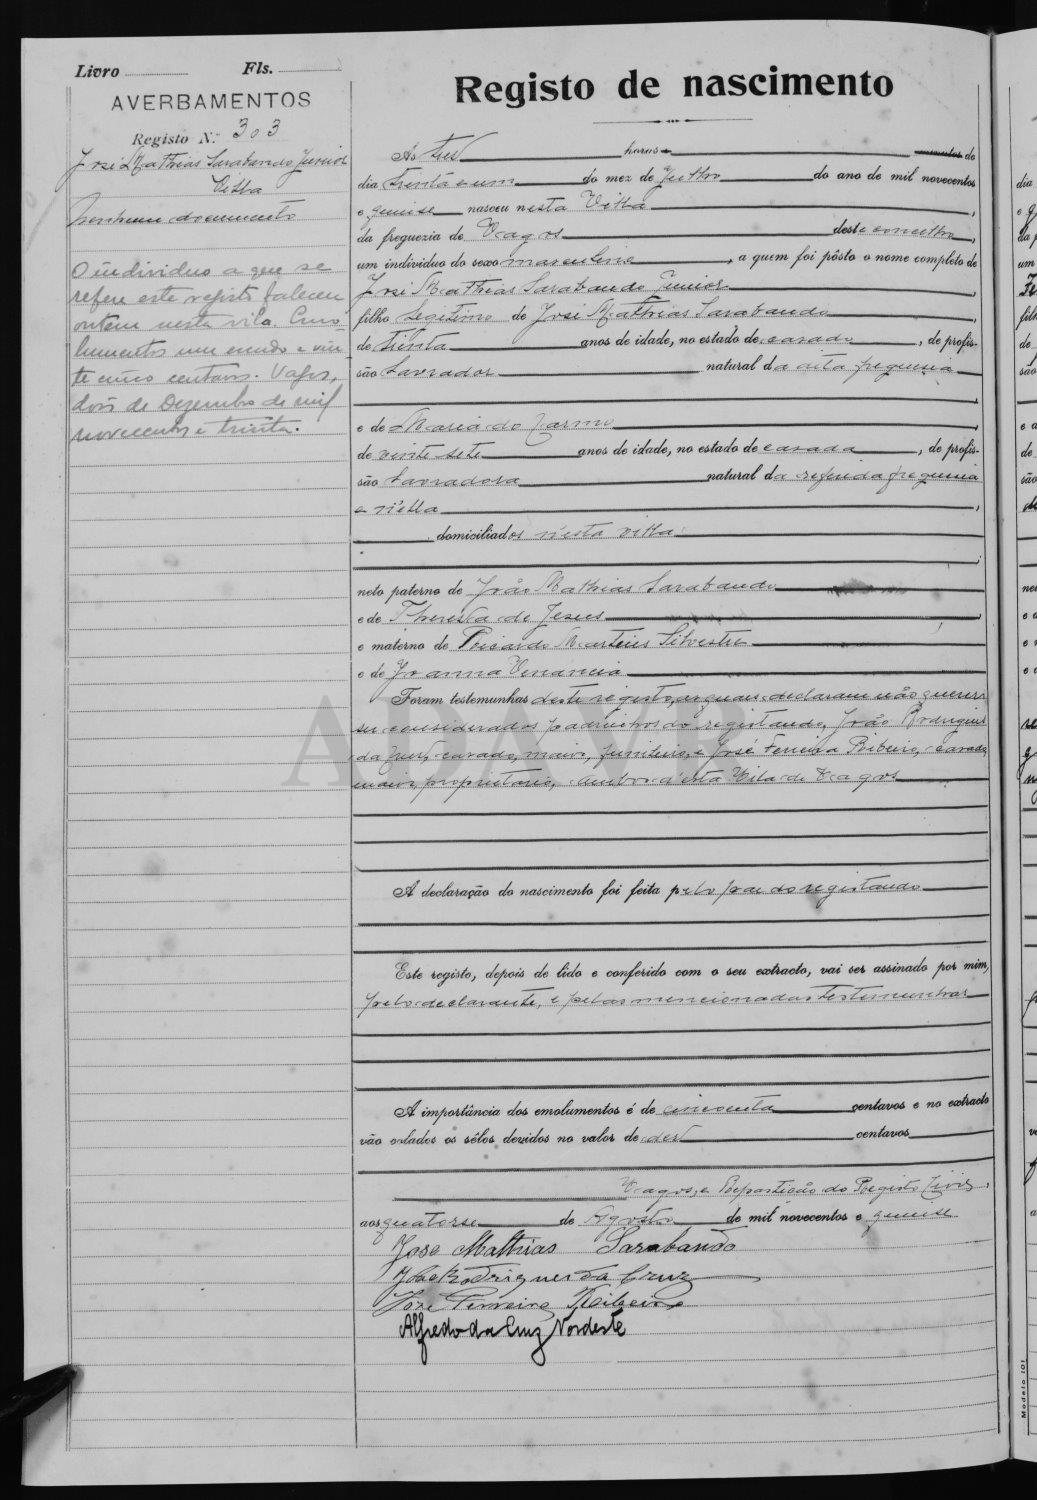 Livro
Fls.
AVERBAMENTOS
Registo N.º 303
José Mathias Sarabando Junior
Villa
Nenhum documento
O individuo a que se
refere este registo faleceu
ontem nesta vila. Emo-
lumentos um escudo e vin-
te cinco centavos. Vagos,
dois de Dezembro de mil
novecentos e trinta.
Registo de nascimento
Ás tres horas minutos do
dia trinta e um do mez de Julho do ano de mil novecentos
e quinse nasceu nesta Villa
da freguezia de Vagos deste concelho,
um individuo do sexo masculino, a quem foi pôsto o nome completo de
José Mathias Sarabando Junior
filho legitimo de José Mathias Sarabando
de trinta anos de idade, no estado de casado, de profis-
são Lavrador natural da dita freguesia
e de Maria do Carmo
de vinte sete anos de idade, no estado de casada, de profis-
são Lavradora natural da referida freguesia
e villa
domiciliados n'esta villa
neto paterno de João Mathias Sarabando
e de Theresa de Jesus
e materno de Ricardo Martins Silvestre
e de Joanna Venancia
Foram testemunhas deste registo, as quaes declaram não querer
ser considerados padrinhos do registando, João Rodrigues
da Cruz, casado, maior, funileiro, e José Ferreira Ribeiro, casado,
maior, proprietario, ambos d'esta Vila de Vagos
A declaração do nascimento foi feita pelo pae do registando
Este registo, depois de lido e conferido com o seu extracto, vai ser assinado por mim,
pelo declarante, e pelas mencionadas testemunhas
A importância dos emolumentos é de cincoenta centavos e no extracto
vão colados os sêlos devidos no valor de des centavos
Vagos, e Repartição do Registo Civil,
aos quatorse de Agosto de mil novecentos e quinse
Jose Mathias Sarabando
João Rodrigues da Cruz
José Ferreira Ribeiro
Alfredo da Cruz Nordeste
Modelo 101